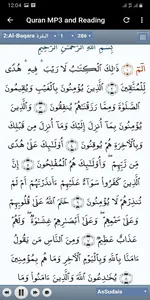 12:04
Quran MP3 and Reading
2:Al-Baqara البقرة
1
286
بِسْمِ اللَّهِ الرَّحْمَٰنِ الرَّحِيمِ
الٓمٓ ۝ ذَٰلِكَ الْكِتَٰبُ لَا رَيْبَ ۛ فِيهِ ۛ هُدًى
لِّلْمُتَّقِينَ ۝ الَّذِينَ يُؤْمِنُونَ بِالْغَيْبِ وَيُقِيمُونَ
الصَّلَوٰةَ وَمِمَّا رَزَقْنَٰهُمْ يُنفِقُونَ ۝ وَالَّذِينَ
يُؤْمِنُونَ بِمَا أُنزِلَ إِلَيْكَ وَمَا أُنزِلَ مِن قَبْلِكَ
وَبِالْءَاخِرَةِ هُمْ يُوقِنُونَ ۝ أُو۟لَٰٓئِكَ عَلَىٰ هُدًى
مِّن رَّبِّهِمْ ۖ وَأُو۟لَٰٓئِكَ هُمُ الْمُفْلِحُونَ ۝ إِنَّ
الَّذِينَ كَفَرُوا سَوَآءٌ عَلَيْهِمْ ءَأَنذَرْتَهُمْ أَمْ لَمْ
تُنذِرْهُمْ لَا يُؤْمِنُونَ ۝ خَتَمَ اللَّهُ عَلَىٰ قُلُوبِهِمْ
وَعَلَىٰ سَمْعِهِمْ ۖ وَعَلَىٰ أَبْصَٰرِهِمْ غِشَٰوَةٌ ۖ وَلَهُمْ
عَذَابٌ عَظِيمٌ ۝ وَمِنَ النَّاسِ مَن يَقُولُ
ءَامَنَّا بِاللَّهِ وَبِالْيَوْمِ الْءَاخِرِ وَمَا هُم بِمُؤْمِنِينَ
۝ يُخَٰدِعُونَ اللَّهَ وَالَّذِينَ ءَامَنُوا وَمَا
AsSudais